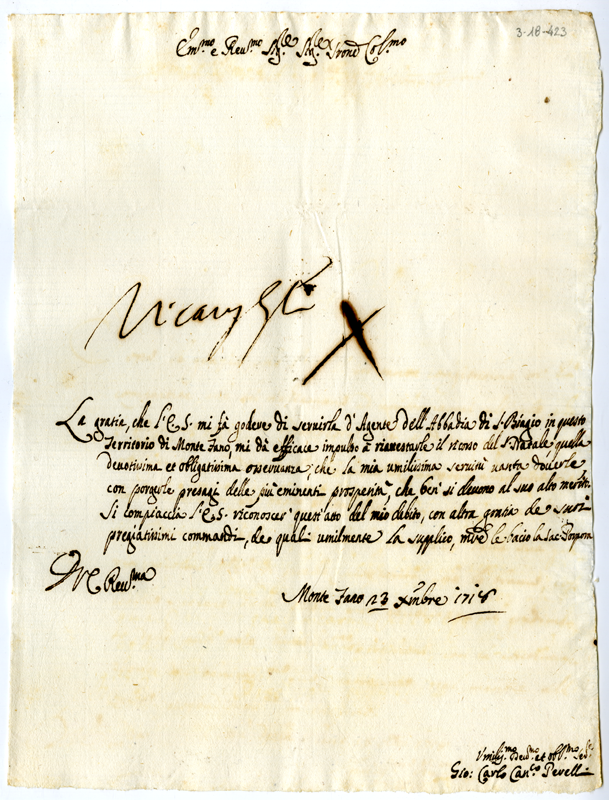 3-18-423
Em.mo e Reu.mo Sig.re Sig.re Prone Col.mo
Vicarij Gli
X
La gratia, che l'E.S. mi fà godere di seruirla d'Agente dell'Abbadia di S. Biagio in questo
Territorio di Monte Fano, mi dà efficace impulso à riamostarle il ricorso del S. Natale, quella
deuotissima et obligatissima osseruanza, che la mia umilissima seruitù uanta douerle,
con porgerle presagi delle più eminenti prosperità, che ben si deuono al suo alto merito.
Si compiaccia l'E.S. riconoscer quest'atto del mio debito, con altra gionta de suoi
pregiatissimi commandi, de quali umilmente la supplico, mtre le bacio la Sac. Porpora
D.V.E. Reu.ma
Monte Fano 23 Xmbre 1718
Umiliss.mo Deu.mo et obl.mo Ser.
Gio: Carlo Can.co Perelli